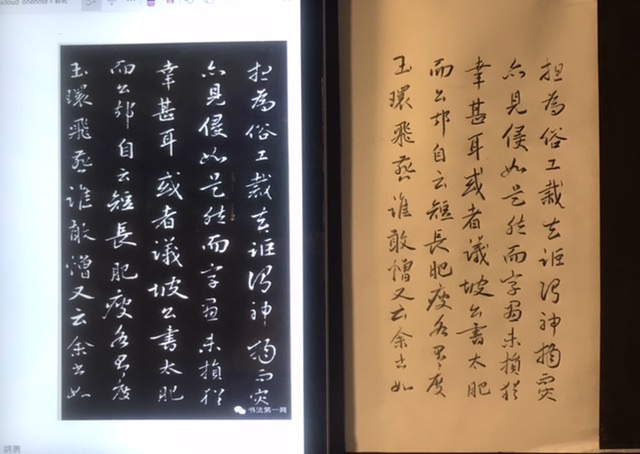 為俗工裁去詎謂神物而
亦見侵如是然而字畫未損猶
幸甚耳或者議坡公書太肥
而公却自云短長肥瘦各有度
玉環飛燕誰敢憎又云余書如
书法第一网
為俗工裁去詎謂神物而
亦見侵如是然而字畫未損猶
幸甚耳或者議坡公書太肥
而公却自云短長肥瘦各有度
玉環飛燕誰敢憎又云余書如